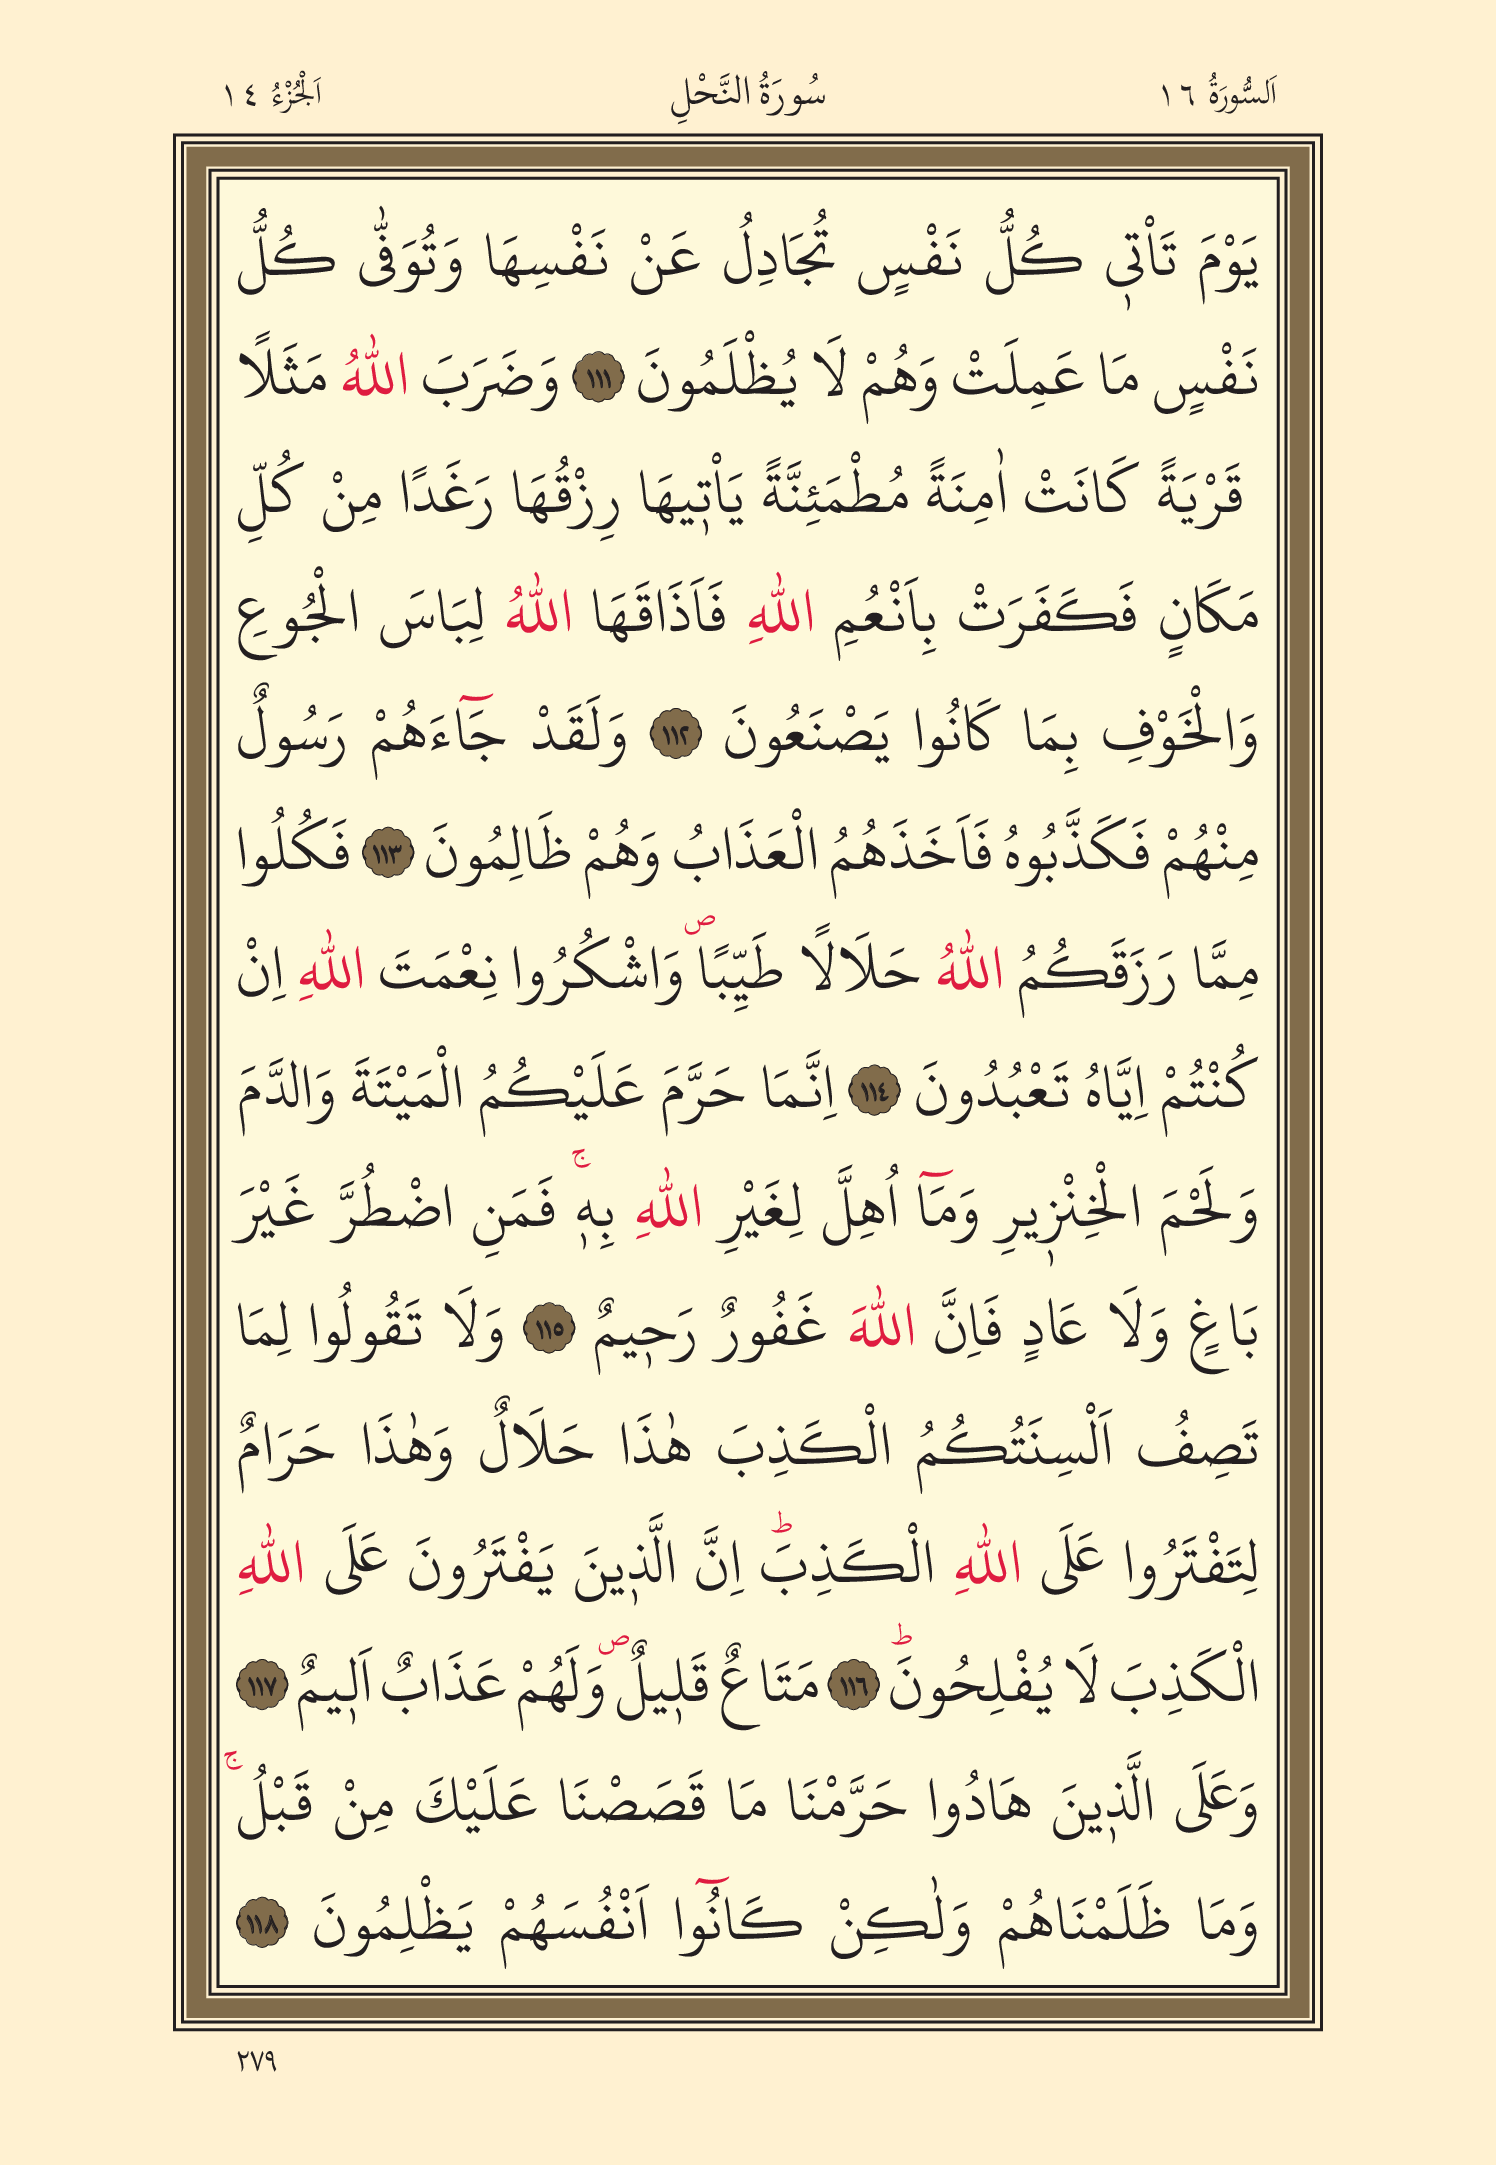 اَلسُّورَةُ ١٦ سُورَةُ النَّحْلِ اَلْجُزْءُ ١٤
يَوْمَ تَأْت۪ي كُلُّ نَفْسٍ تُجَادِلُ عَنْ نَفْسِهَا وَتُوَفّٰى كُلُّ
نَفْسٍ مَا عَمِلَتْ وَهُمْ لَا يُظْلَمُونَ ١١١ وَضَرَبَ اللّٰهُ مَثَلًا
قَرْيَةً كَانَتْ اٰمِنَةً مُطْمَئِنَّةً يَأْت۪يهَا رِزْقُهَا رَغَدًا مِنْ كُلِّ
مَكَانٍ فَكَفَرَتْ بِاَنْعُمِ اللّٰهِ فَاَذَاقَهَا اللّٰهُ لِبَاسَ الْجُوعِ
وَالْخَوْفِ بِمَا كَانُوا يَصْنَعُونَ ١١٢ وَلَقَدْ جَٓاءَهُمْ رَسُولٌ
مِنْهُمْ فَكَذَّبُوهُ فَاَخَذَهُمُ الْعَذَابُ وَهُمْ ظَالِمُونَ ١١٣ فَكُلُوا
مِمَّا رَزَقَكُمُ اللّٰهُ حَلَالًا طَيِّبًاۖ وَاشْكُرُوا نِعْمَتَ اللّٰهِ اِنْ
كُنْتُمْ اِيَّاهُ تَعْبُدُونَ ١١٤ اِنَّمَا حَرَّمَ عَلَيْكُمُ الْمَيْتَةَ وَالدَّمَ
وَلَحْمَ الْخِنْز۪يرِ وَمَٓا اُهِلَّ لِغَيْرِ اللّٰهِ بِه۪ۚ فَمَنِ اضْطُرَّ غَيْرَ
بَاغٍ وَلَا عَادٍ فَاِنَّ اللّٰهَ غَفُورٌ رَح۪يمٌ ١١٥ وَلَا تَقُولُوا لِمَا
تَصِفُ اَلْسِنَتُكُمُ الْكَذِبَ هٰذَا حَلَالٌ وَهٰذَا حَرَامٌ
لِتَفْتَرُوا عَلَى اللّٰهِ الْكَذِبَؕ اِنَّ الَّذ۪ينَ يَفْتَرُونَ عَلَى اللّٰهِ
الْكَذِبَ لَا يُفْلِحُونَؕ ١١٦ مَتَاعٌ قَل۪يلٌۖ وَلَهُمْ عَذَابٌ اَل۪يمٌ ١١٧
وَعَلَى الَّذ۪ينَ هَادُوا حَرَّمْنَا مَا قَصَصْنَا عَلَيْكَ مِنْ قَبْلُۚ
وَمَا ظَلَمْنَاهُمْ وَلٰكِنْ كَانُٓوا اَنْفُسَهُمْ يَظْلِمُونَ ١١٨
٢٧٩